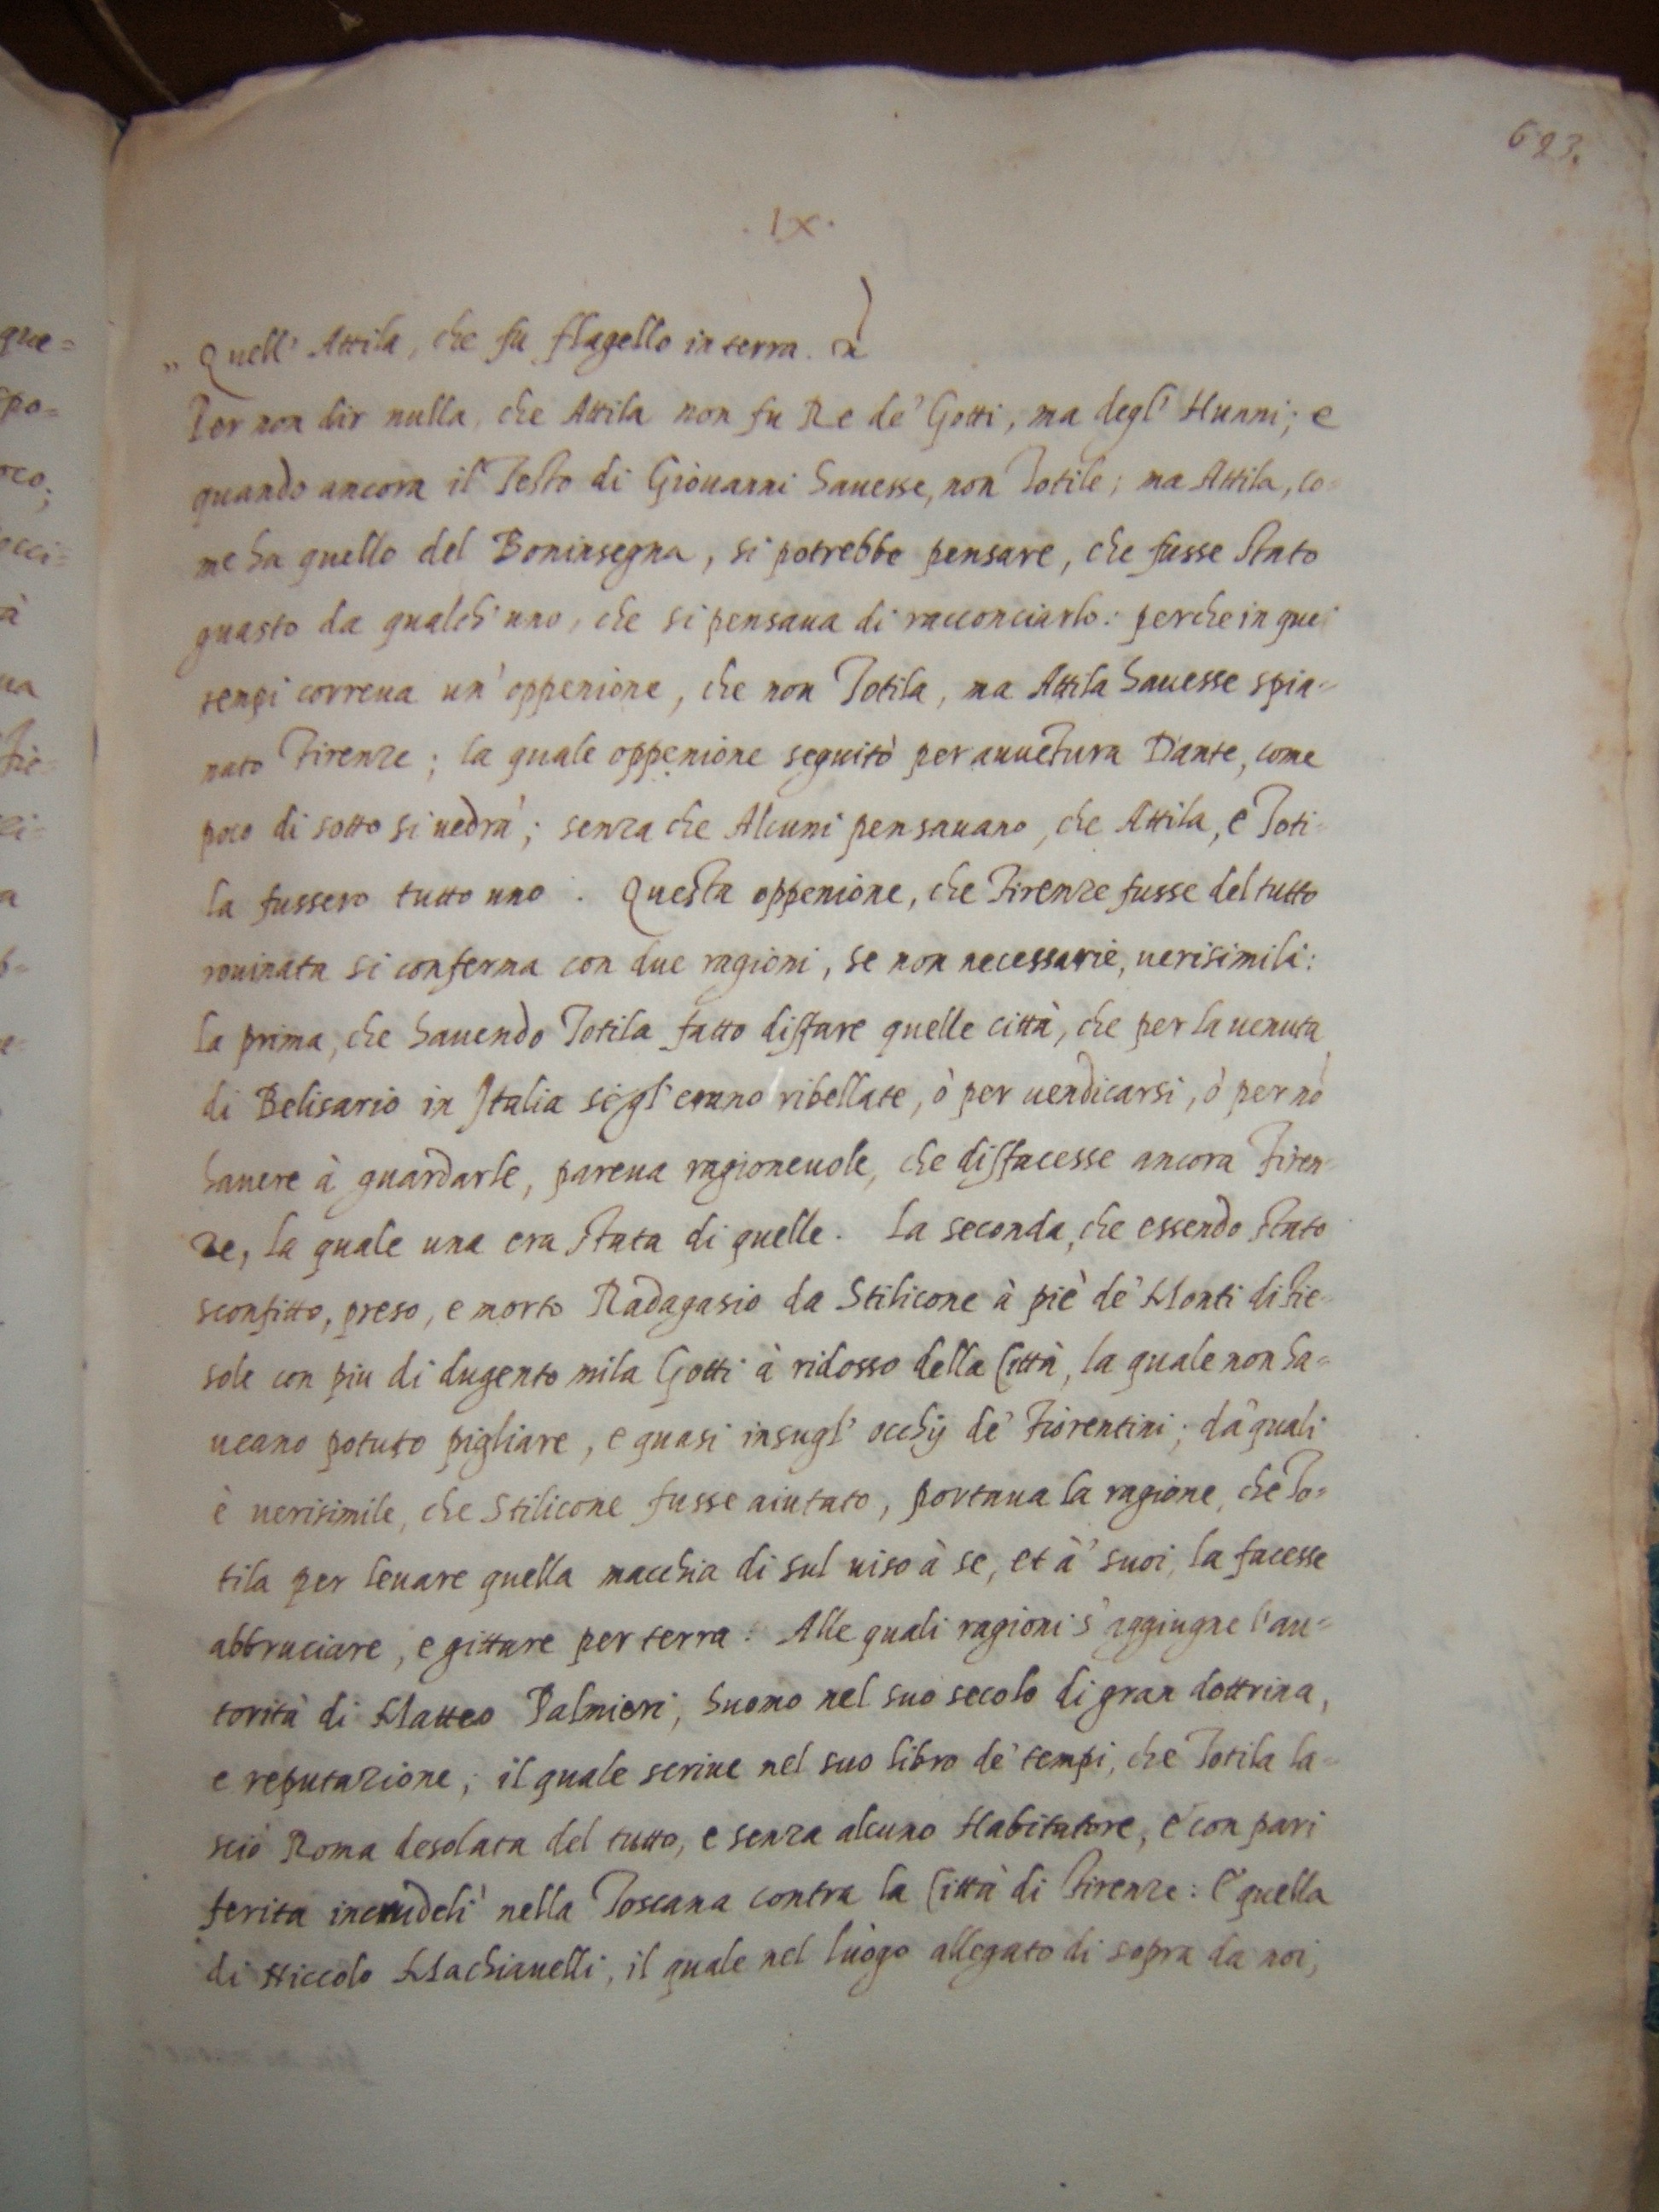 623.
.IX.
„ Quell' Attila, che fu flagello in terra.
Per non dir nulla, che Attila non fu Re de' Gotti, ma degl' Hunni; e
quando ancora il Testo di Giovanni hauesse, non Totile; ma Attila, co=
me ha quello del Boninsegna, si potrebbe pensare, che fusse stato
guasto da qualch'uno, che si pensaua di racconciarlo: perche in quei
tempi correua un' oppenione, che non Totila, ma Attila hauesse spia=
nato Firenze; la quale oppenione seguitò per auuētura Dante, come
poco di sotto si uedrà; senza che Alcuni pensauano, che Attila, e Toti=
la fussero tutto uno. Questa oppenione, che Firenze fusse del tutto
rouinata si conferma con due ragioni, se non necessarie, uerisimili:
la prima, che hauendo Totila fatto disfare quelle città, che per la uenuta
di Belisario in Italia se gl'erano ribellate, ò per uendicarsi, ò per nō
hauere à guardarle, pareua ragioneuole, che disfacesse ancora Firen=
ze, la quale una era stata di quelle. La seconda, che essendo stato
sconfitto, preso, e morto Radagasio da Stilicone à piè de' Monti di Fie=
sole con piu di dugento mila Gotti à ridosso della Città, la quale non ha=
ueano potuto pigliare, e quasi insugl' occhij de' Fiorentini; da' quali
è uerisimile, che Stilicone fusse aiutato, portaua la ragione, che To=
tila per leuare quella macchia di sul uiso à se, et à' suoi, la facesse
abbruciare, e gittare per terra: Alle quali ragioni s'aggiugne l'au=
torità di Matteo Palmieri, huomo nel suo secolo di gran dottrina,
e reputazione; il quale scriue nel suo libro de' tempi, che Totila la=
sciò Roma desolata del tutto, e senza alcuno Habitatore, e con pari
ferità incrudelì nella Toscana contra la Città di Firenze: E quella
di Niccolo Machiauelli, il quale nel luogo allegato di sopra da noi,